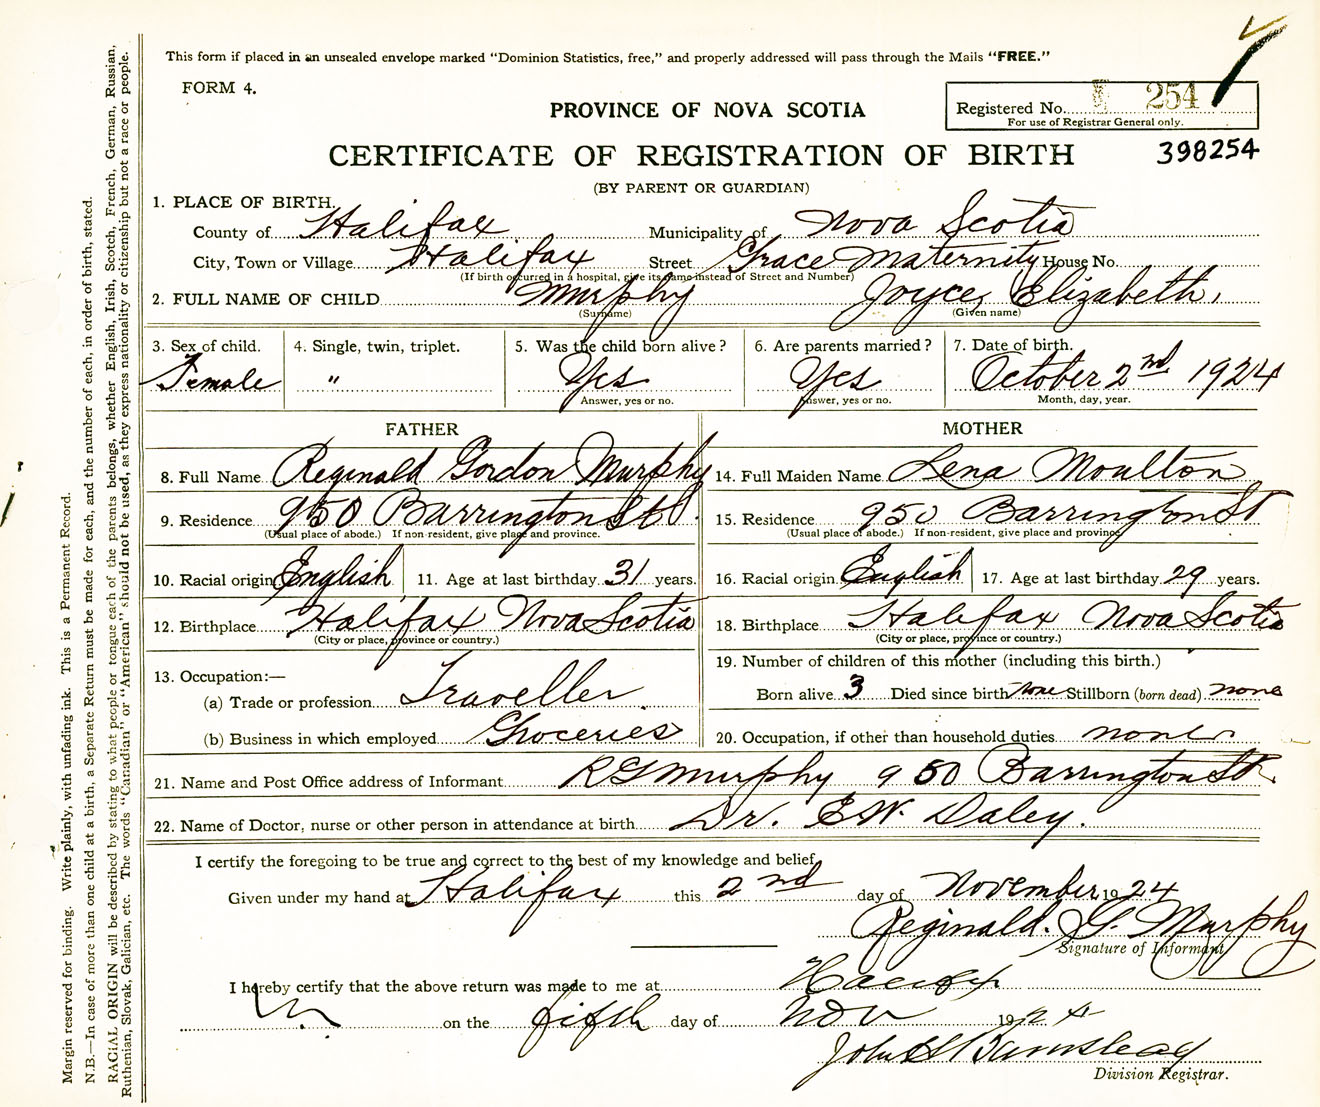 This form if placed in an unsealed envelope marked "Dominion Statistics, free," and properly addressed will pass through the Mails "FREE."
FORM 4.
Registered No. 254
For use of Registrar General only.
PROVINCE OF NOVA SCOTIA
CERTIFICATE OF REGISTRATION OF BIRTH
398254
(BY PARENT OR GUARDIAN)
1. PLACE OF BIRTH.
County of Halifax Municipality of Nova Scotia
City, Town or Village Halifax Street Grace Maternity House No.
(If birth occurred in a hospital, give its name instead of Street and Number)
2. FULL NAME OF CHILD Murphy Joyce, Elizabeth,
(Surname) (Given name)
3. Sex of child. 4. Single, twin, triplet. 5. Was the child born alive? 6. Are parents married? 7. Date of birth.
Female " Yes Yes October 2nd 1924
Answer, yes or no. Answer, yes or no. Month, day, year.
FATHER MOTHER
8. Full Name Reginald Gordon Murphy 14. Full Maiden Name Lena Moulton
9. Residence 950 Barrington St 15. Residence 950 Barrington St
(Usual place of abode.) If non-resident, give place and province. (Usual place of abode.) If non-resident, give place and province
10. Racial origin English 11. Age at last birthday 31 years. 16. Racial origin English 17. Age at last birthday 29 years.
12. Birthplace Halifax Nova Scotia 18. Birthplace Halifax Nova Scotia
(City or place, province or country.) (City or place, province or country.)
13. Occupation:— 19. Number of children of this mother (including this birth.)
(a) Trade or profession Traveller Born alive 3 Died since birth none Stillborn (born dead) none
(b) Business in which employed Groceries 20. Occupation, if other than household duties none
21. Name and Post Office address of Informant R G Murphy 950 Barrington St
22. Name of Doctor, nurse or other person in attendance at birth Dr. E.W. Daley.
I certify the foregoing to be true and correct to the best of my knowledge and belief,
Given under my hand at Halifax this 2nd day of November 1924
Reginald. G. Murphy
Signature of Informant
I hereby certify that the above return was made to me at Halifax
on the fifth day of Nov 1924
John H Barnstead
Division Registrar.
Margin reserved for binding. Write plainly, with unfading ink. This is a Permanent Record.
N.B.—In case of more than one child at a birth, a Separate Return must be made for each, and the number of each, in order of birth, stated.
RACIAL ORIGIN will be described by stating to what people or tongue each of the parents belongs, whether English, Irish, Scotch, French, German, Russian,
Ruthenian, Slovak, Galician, etc. The words "Canadian" or "American" should not be used, as they express nationality or citizenship but not a race or people.